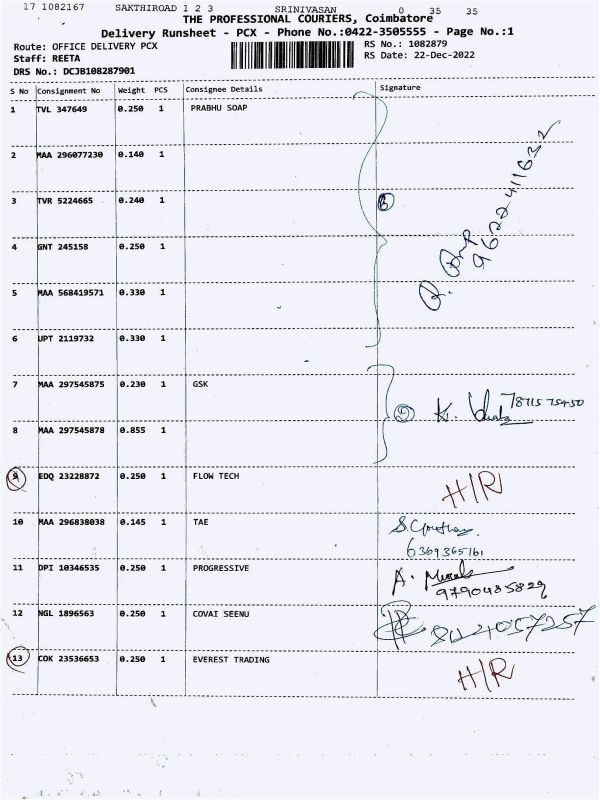 17 1082167 SAKTHIROAD 1 2 3 SRINIVASAN 0 35 35
THE PROFESSIONAL COURIERS, Coimbatore
Delivery Runsheet - PCX - Phone No.:0422-3505555 - Page No.:1
Route: OFFICE DELIVERY PCX RS No.: 1082879
Staff: REETA RS Date: 22-Dec-2022
DRS No.: DCJB108287901
S No Consignment No Weight PCS Consignee Details Signature
1 TVL 347649 0.250 1 PRABHU SOAP
2 MAA 296077230 0.140 1
3 TVR 5224665 0.240 1
4 GNT 245158 0.250 1
5 MAA 568419571 0.330 1
6 UPT 2119732 0.330 1
7 MAA 297545875 0.230 1 GSK K.
8 MAA 297545878 0.855 1
9 EDQ 23228872 0.250 1 FLOW TECH H/R
10 MAA 296838038 0.145 1 TAE
6369365161
11 DPI 10346535 0.250 1 PROGRESSIVE A.
9790485829
12 NGL 1896563 0.250 1 COVAI SEENU
13 COK 23536653 0.250 1 EVEREST TRADING H/R